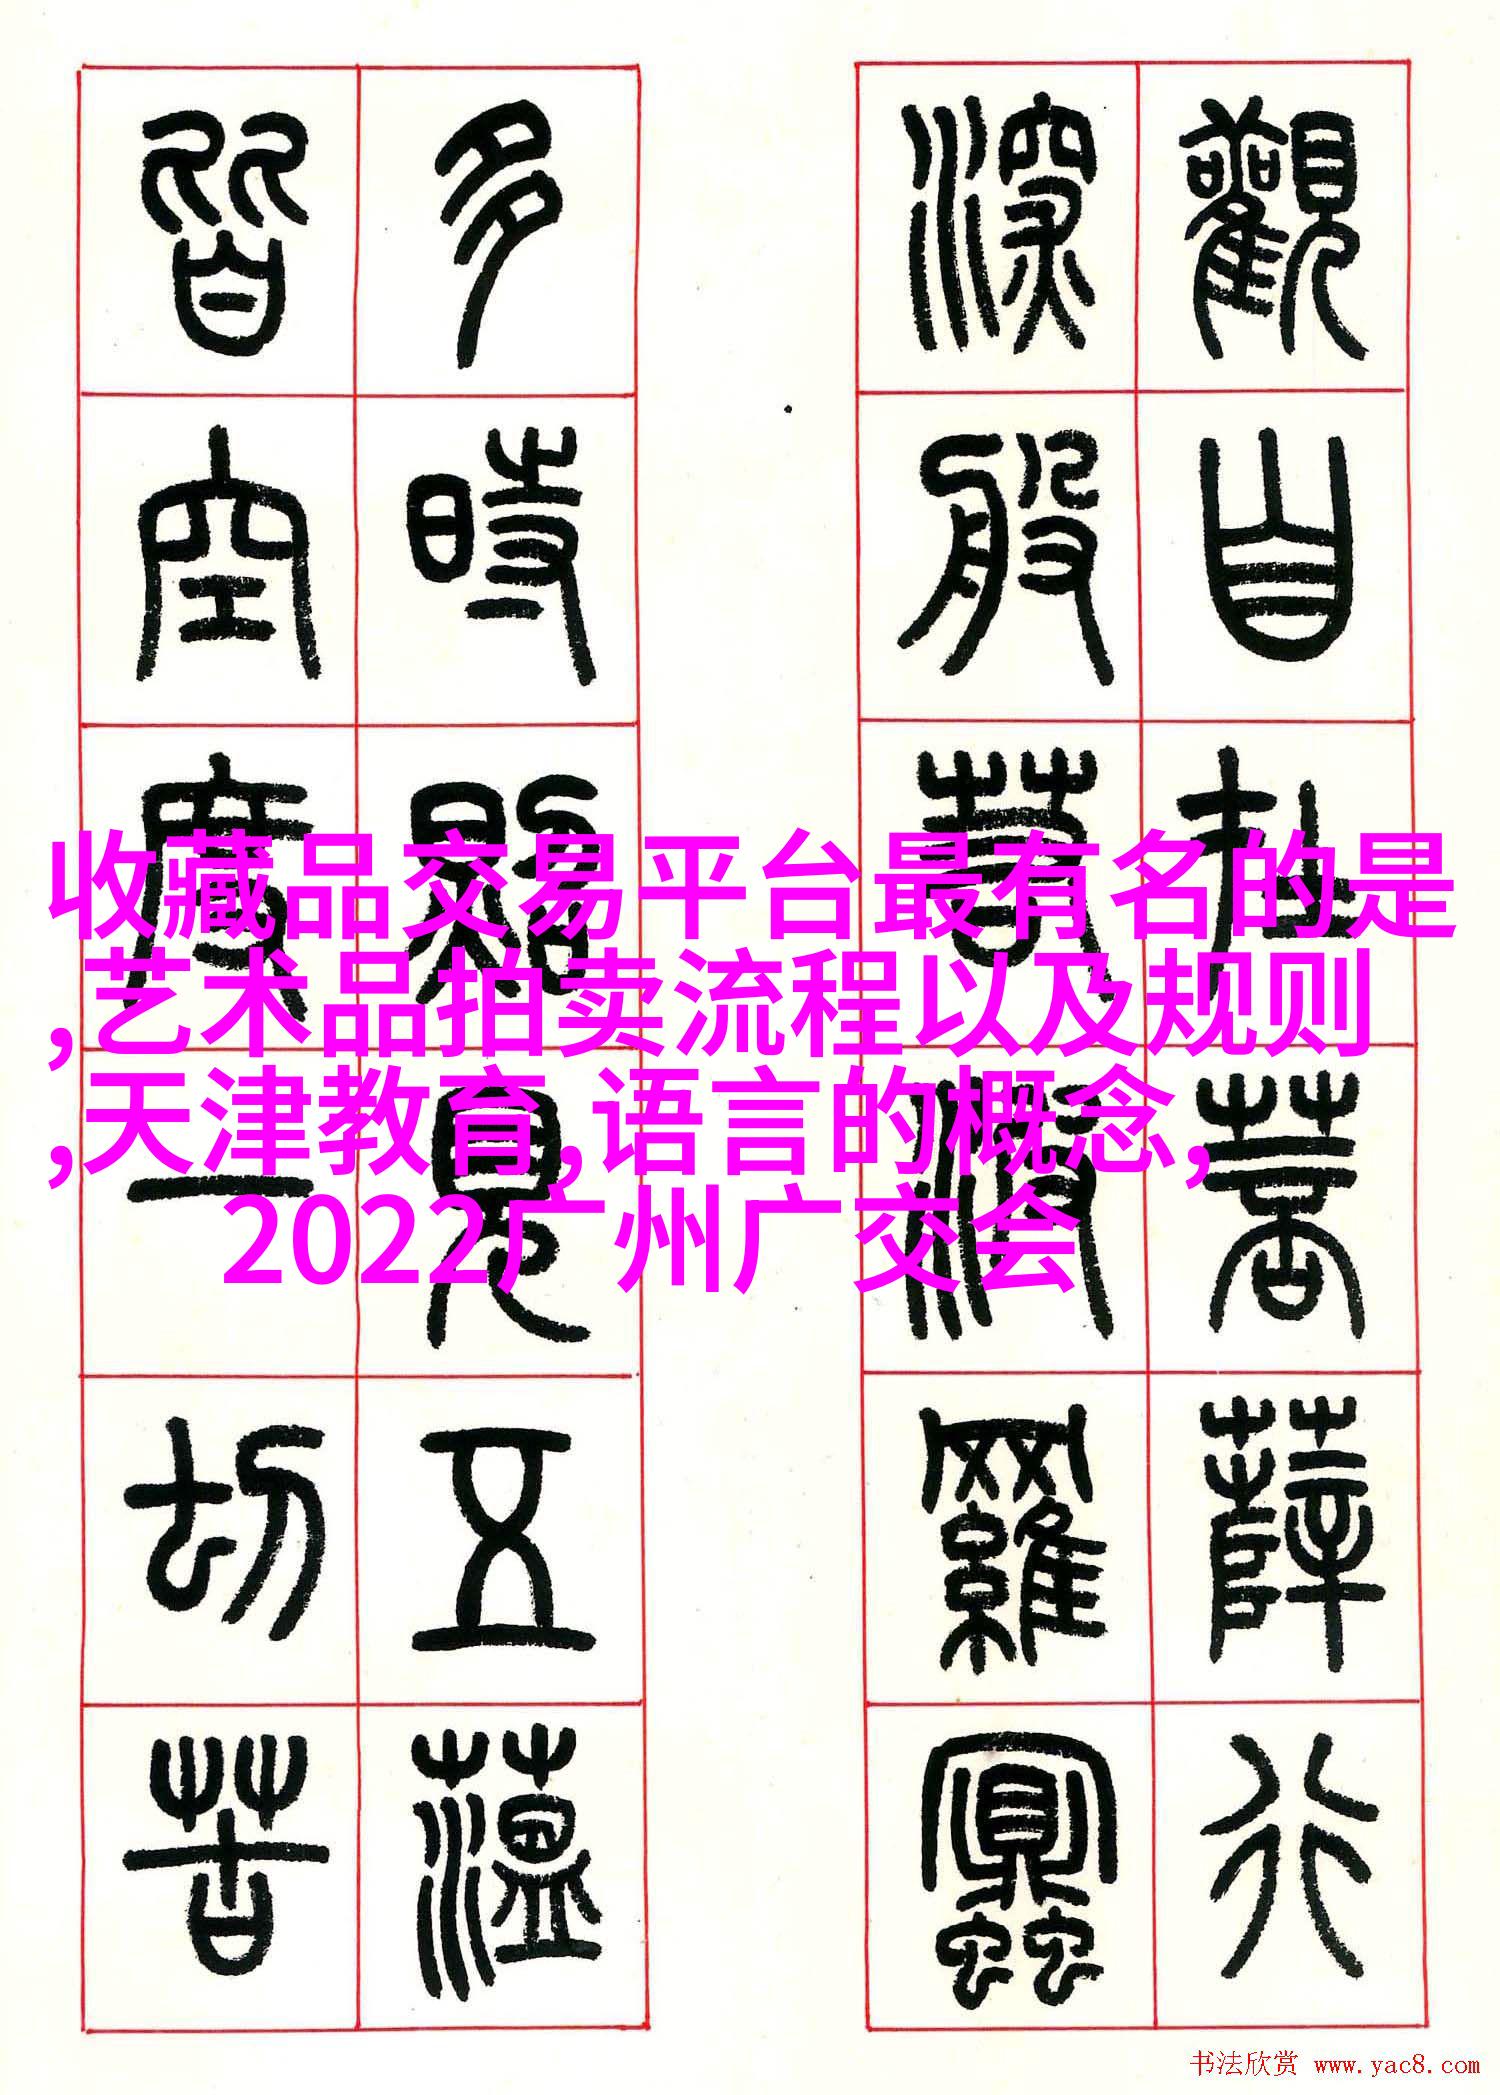 觀自在菩薩行
深般若波羅蜜
多時照見五蘊
皆空度一切苦
收藏品交易平台最有名的是
,艺术品拍卖流程以及规则
,天津教育,语言的概念,
2022广州广交会
书法欣赏 www.yac8.com